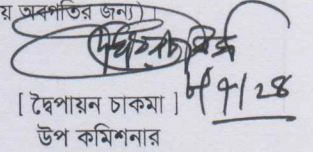 য় অবগতির জন্য)।
[ দ্বৈপায়ন চাকমা ]
উপ কমিশনার